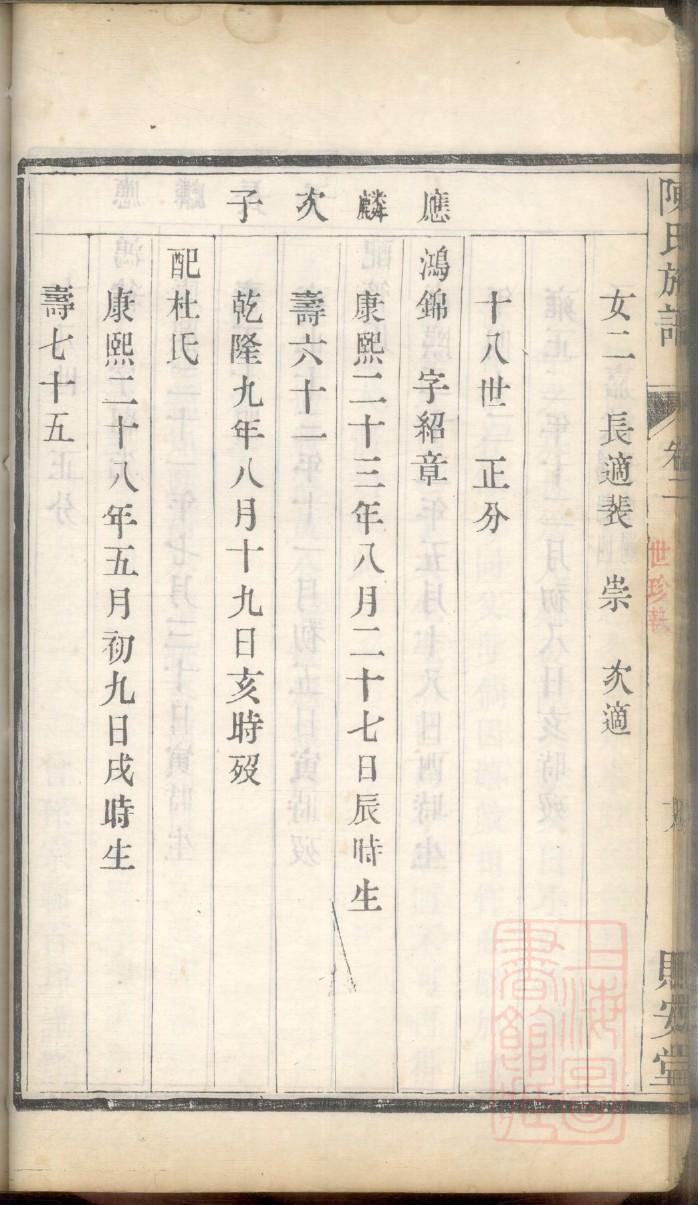 陳氏族譜 卷二
世珍執
賜安堂
女二 長適裴 崇 次適
十八世 正分
應麟次子
鴻錦 字紹章
康熙二十三年八月二十七日辰時生
壽六十一
乾隆九年八月十九日亥時歿
配杜氏
康熙二十八年五月初九日戌時生
壽七十五
上海圖書館藏